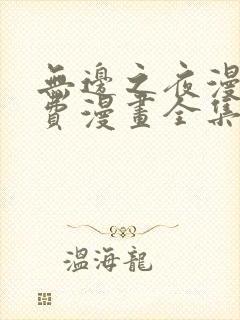 無邊之夜漫
費漫畫全集
溫海龍